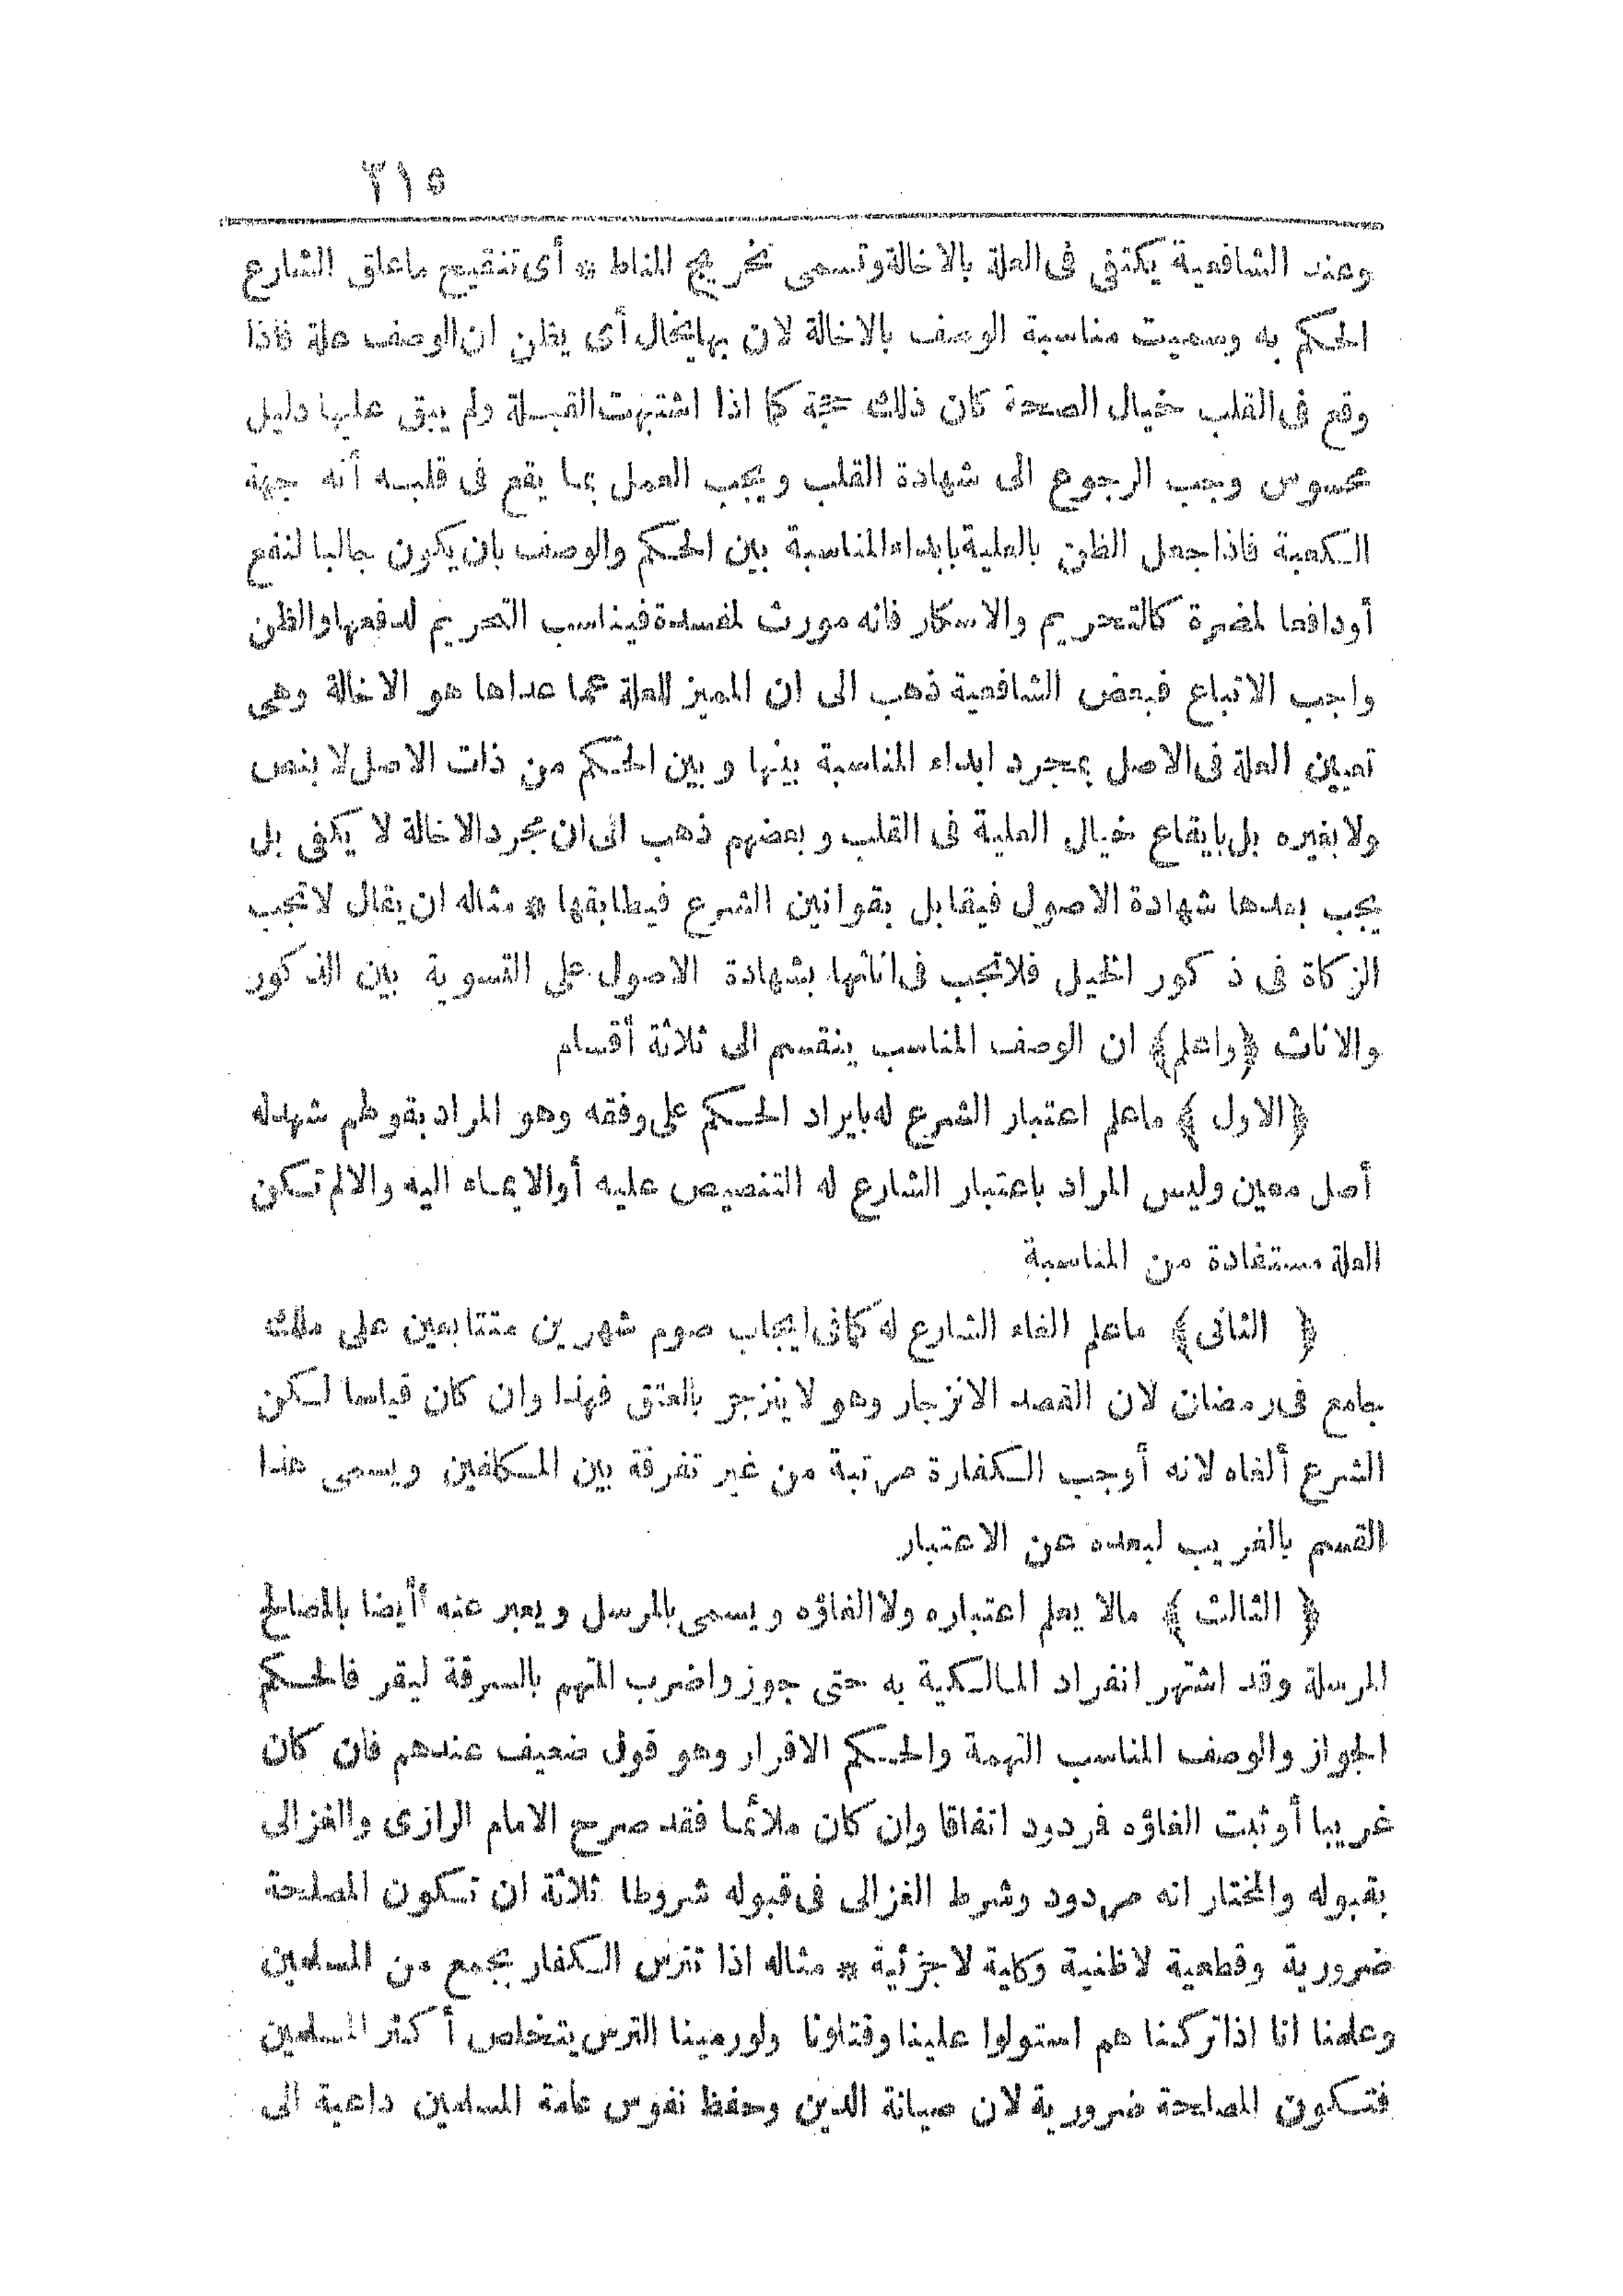 ٣١٥
وعند الشافعية يكتفى فى العلة بالاخالة وتسمى تخريج المناط * أى تنقيح ما علق الشارع
الحكم به وسميت مناسبة الوصف بالاخالة لان بها يخال أى يظن ان الوصف علة فاذا
وقع فى القلب خيال الصحة كان ذلك حجة كما اذا اشتبهت القبلة ولم يبق عليها دليل
محسوس وجب الرجوع الى شهادة القلب ويجب العمل بما يقع فى قلبه أنه جهة
الكعبة فاذا جعل الظن بالعلية بابداء المناسبة بين الحكم والوصف بان يكون جالبا لنفع
أو دافعا لمضرة كالتحريم والاسكار فانه مورث لمفسدة فيناسب التحريم لدفعها والظن
واجب الاتباع فبعض الشافعية ذهب الى ان المميز للعلة عما عداها هو الاخالة وهى
تعيين العلة فى الاصل بمجرد ابداء المناسبة بينها وبين الحكم من ذات الاصل لا بنص
ولا بغيره بل بايقاع خيال العلية فى القلب وبعضهم ذهب الى ان مجرد الاخالة لا يكفى بل
يجب بعدها شهادة الاصول فيقابل بقوانين الشرع فيطابقها * مثاله ان يقال لا تجب
الزكاة فى ذكور الخيل فلا تجب فى اناثها بشهادة الاصول على التسوية بين الذكور
والاناث ﴿واعلم﴾ ان الوصف المناسب ينقسم الى ثلاثة أقسام
﴿الاول﴾ ما علم اعتبار الشرع له بايراد الحكم على وفقه وهو المراد بقولهم شهد له
أصل معين وليس المراد باعتبار الشارع له التنصيص عليه أو الايماء اليه والا لم تكن
العلة مستفادة من المناسبة
﴿الثانى﴾ ما علم الغاء الشارع له كما فى ايجاب صوم شهرين متتابعين على ملك
جامع فى رمضان لان القصد الانزجار وهو لا ينزجر بالعتق فهذا وان كان قياسا لكن
الشرع ألغاه لانه أوجب الكفارة مرتبة من غير تفرقة بين المكلفين ويسمى هذا
القسم بالغريب لبعده عن الاعتبار
﴿الثالث﴾ ما لا يعلم اعتباره ولا الغاؤه ويسمى بالمرسل ويعبر عنه أيضا بالمصالح
المرسلة وقد اشتهر انفراد المالكية به حتى جوزوا ضرب المتهم بالسرقة ليقر فالحكم
الجواز والوصف المناسب التهمة والحكم الاقرار وهو قول ضعيف عندهم فان كان
غريبا أو ثبت الغاؤه فمردود اتفاقا وان كان ملائما فقد صرح الامام الرازى والغزالى
بقبوله والمختار انه مردود وشرط الغزالى فى قبوله شروطا ثلاثة ان تكون المصلحة
ضرورية وقطعية لا ظنية وكلية لا جزئية * مثاله اذا تترس الكفار بجمع من المسلمين
وعلمنا انا اذا تركناهم استولوا علينا وقتلونا ولو رمينا الترس يتخلص أكثر المسلمين
فتكون المصلحة ضرورية لان صيانة الدين وحفظ نفوس عامة المسلمين داعية الى